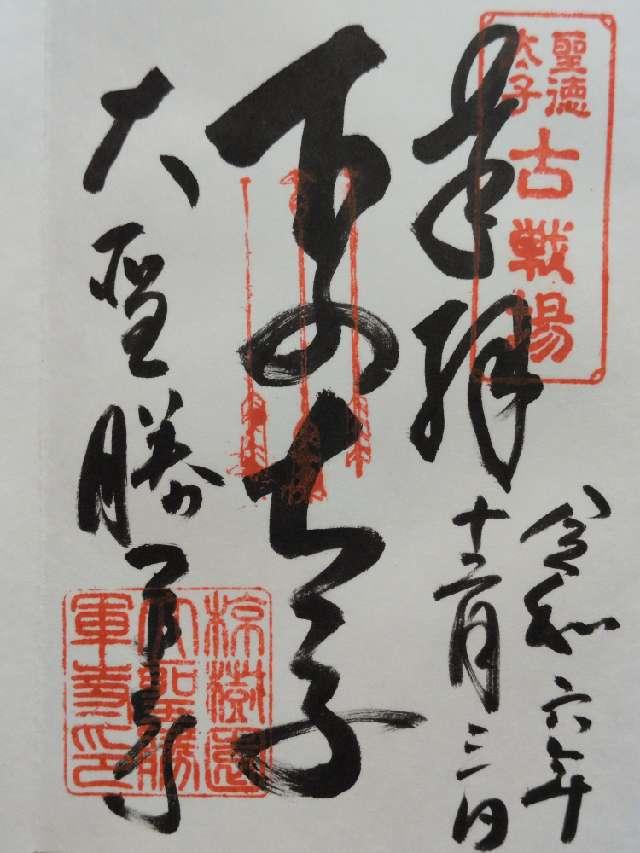 聖徳
太子
古戦場
奉拝
令和六年
十二月三日
下の太子
大聖勝軍寺
椋樹園
大聖勝
軍寺印